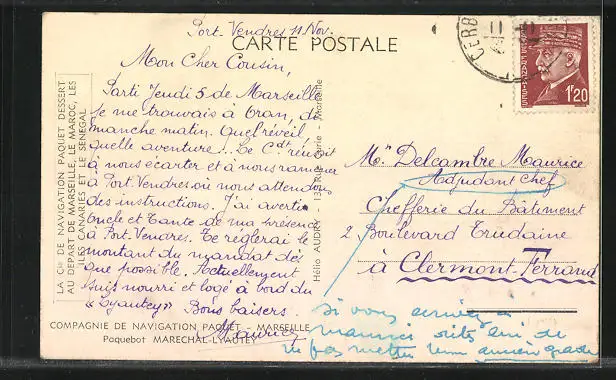 Port-Vendres 11 Nov.
CARTE POSTALE
Mon Cher Cousin,
Parti Jeudi 5 de Marseille
je me trouvais à Oran, di-
manche matin. Quel réveil
quelle aventure ! .. Le Cdt réussit
à nous écarter et à nous ramener
à Port-Vendres où nous attendons
des instructions. J'ai averti
Oncle et Tante de ma présence
à Port-Vendres. Je reglerai le
montant du mandat dès
que possible. Actuellement
suis nourri et logé à bord du
"Lyautey" Bons baisers.
Maurice
LA CIE DE NAVIGATION PAQUET DESSERT
AU DÉPART DE MARSEILLE, LE MAROC, LES
ILES CANARIES ET LE SENEGAL
COMPAGNIE DE NAVIGATION PAQUET - MARSEILLE
Paquebot MARECHAL-LYAUTEY
Hélio AUDRY - 13, Rue - Marseille
CERB
1F20
Mr Delcambre Maurice
Adjudant Chef
Chefferie du Bâtiment
2 Boulevard Trudaine
à Clermont-Ferrand
si vous à
de
pas mettre ancien grade